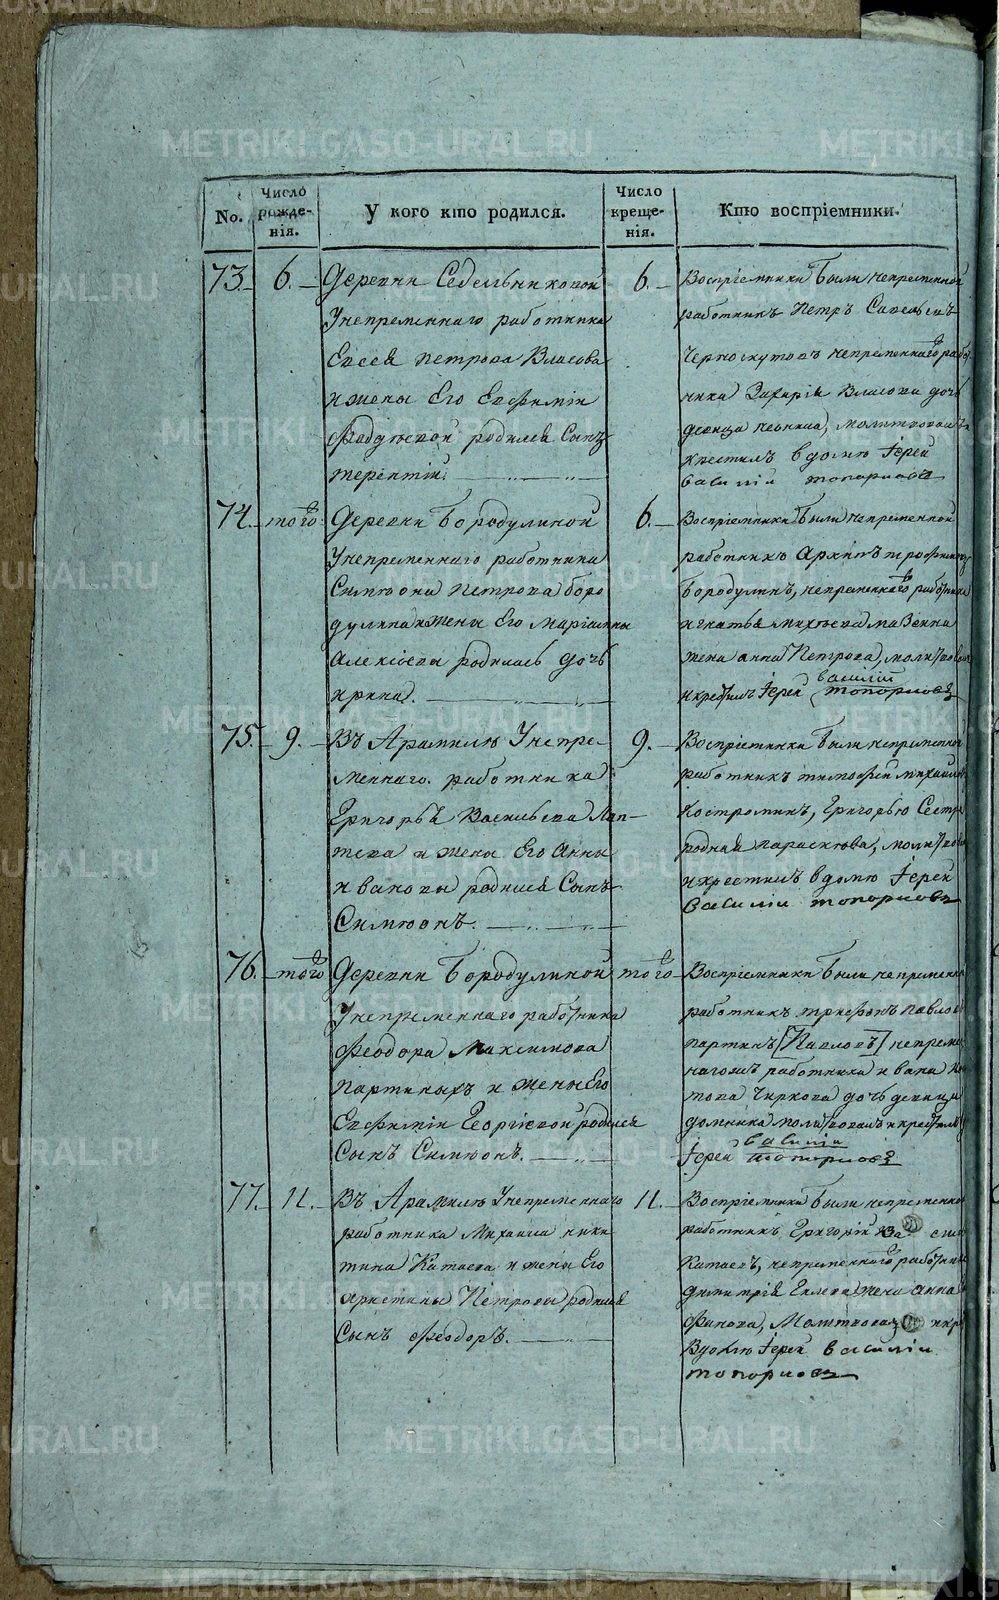 No.
Число рожде-нія.
У кого кто родился.
Число креще-нія.
Кто воспріемники.
73. 6.
Деревни Седельниковой
Унепременнаго работника
Евсея Петрова Власова
и жены Его Евфиміи
родился Сынъ
терентій.
6.
Воспріемники были непременной
работникъ Петръ Савельевъ
Черноскутовъ непременнаго рабо
ника Захарія Власова дочь
девица
крестилъ в домѣ Іерей
василій топорковъ
74. того
Деревни Бородулиной
Унепременнаго работника
Симіона Петрова боро
дулина и жены Его Маріанны
Алексіевы родилась дочь
ирина.
6.
Воспріемники были непременной
работникъ Архипъ трофимовъ
Бородулинъ, непременнаго работника
игнатья
жена анна Петрова, молитвовалъ
и крестилъ Іерей василій топорковъ
75. 9.
Въ Арамилѣ Унепре-
меннаго работника
Григорья Васильева Лап-
тева и жены Его Анны
Ивановы родился Сынъ
Симіонъ.
9.
Воспріемники были непременной
работникъ тимофей михайловъ
Костроминъ, Григорью Сестра
родная параскева, молитвовалъ
и крестилъ в домѣ Іерей
василій топорковъ
76. того
Деревни Бородулиной
Унепременнаго работника
Феодора Максимова
партиныхъ и жены Его
Евфиміи Георгіевой родился
Сынъ Симіонъ.
того
Воспріемники были непременной
работникъ трифонъ павловъ
партинъ [Павловъ] непреме
работника ивана
Чиркова дочь девица
домника молитвовалъ и крестилъ
Іерей василій топорковъ
77. 11.
Въ Арамилѣ Унепременнаго
работника Михаила ники
тина Катаева и жены Его
христины Петровы родился
Сынъ Феодоръ.
11.
Воспріемники были непременной
работникъ Григорій
Катаевъ, непременнаго работника
димитрія жена анна
Молитвовалъ и кре
В домѣ Іерей василій
топорковъ
METRIKI.GASO-URAL.RU